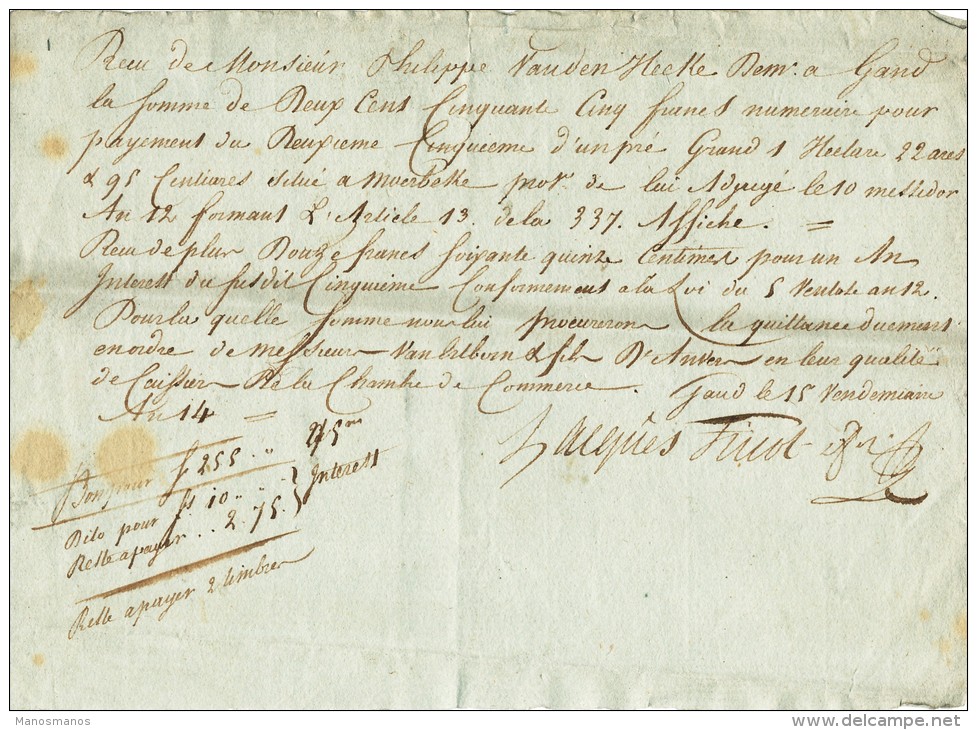 Recu de Monsieur Philippe Vanden Hecke Demt. a Gand
la somme de Deux Cent Cinquante Cinq francs numeraire pour
payement du Deuxieme Cinquieme d'un pré Grand 1 Hectare 22 ares
& 95 Centiares situé a Moerbeke prov. de lui Adjugé le 10 messidor
An 12 formant L'Article 13. de la 337. Affiche. =
Recu de plus Douze francs soixante quinze Centimes pour un An
Interest du susdit Cinquieme Conformement a la Loi du 5 Ventose an 12.
Pour la quelle somme nous lui procurerons la quittance duement
en ordre de Messieurs Van Ertborn & fils D'Anvers en leur qualité
de Caissier De la Chambre de Commerce. Gand le 15 Vendemiaire
An 14 =
Jacques
Bon pour f 255 ..
Dito pour fs 10 .. Interest
Reste a payer .. 2.75.
Reste a payer 2 timbres
Manosmanos
delcampe.net